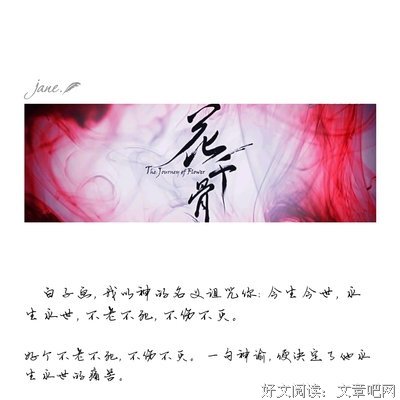 jane.
花千骨
The Journey of Flower
白子画，我以神的名义诅咒你：今生今世，永
生永世，不老不死，不伤不灭。
好个不老不死，不伤不灭。一句神谕，便决定了他永
生永世的痛苦。
好文阅读：文章吧网